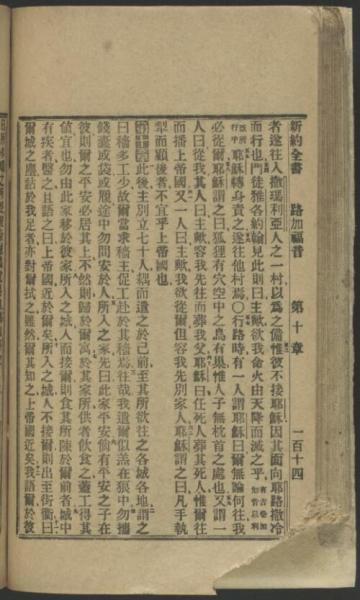 新約全書 路加福音 第十章 一百十四
者遂往入撒瑪利亞人之一村以爲之備惟彼不接耶穌因其面向耶路撒冷
而行也門徒雅各約翰見此則曰主歟欲我命火由天降而滅之乎
耶穌轉身責之遂往他村焉〇行路時有一人謂耶穌曰爾無論何往我
必從爾耶穌謂之曰狐狸有穴空中之鳥有巢惟人子無枕首之處也又謂一
人曰從我其人曰主歟容我先往而葬我父耶穌曰任死人葬其死人惟爾往
而播上帝國又一人曰主歟我欲從爾但容我先別家人耶穌謂之曰凡手執
犂而顧後者不宜乎上帝國也
此後主別立七十人耦而遣之於己前至其所欲往之各城各地謂之
曰穡多工少故爾當求穡主促工赴於其穡焉往哉我遣爾似羔在狼中勿攜
錢橐或袋或履途中勿問安於人所入之家先曰此家平安倘有平安之子在
彼則爾之平安必居其上不然則歸於爾寓於其家所供者飲食之蓋工得其
値宜也勿由此家移於彼家所入之城人而接爾則食其所陳於爾前者城中
有疾者醫之且語之曰上帝國近於爾矣所入之城人不接爾則出至街衢曰
爾城之塵沾於我足者亦對爾拭之雖然爾其知之上帝國近矣我語爾於彼